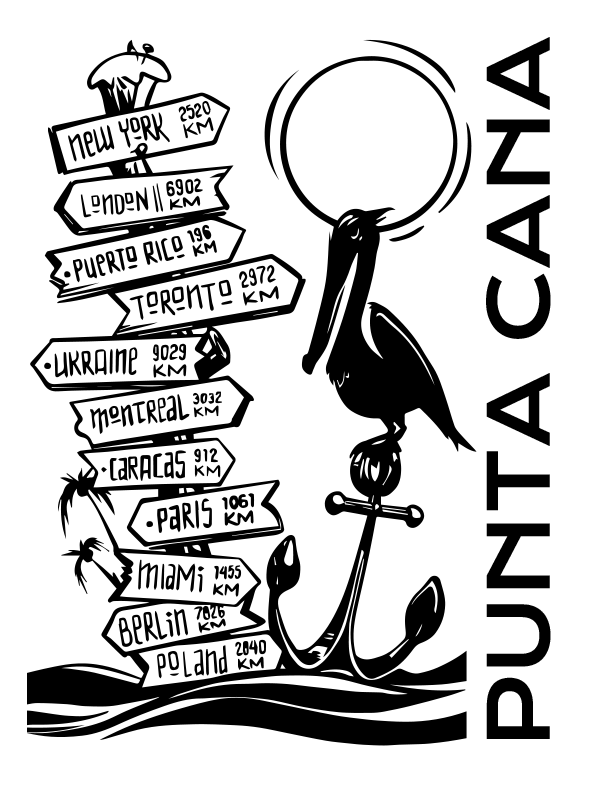 NEW YORK 2520 KM
LONDON || 6902 KM
PUERTO RICO 196 KM
TORONTO 2972 KM
UKRAINE 9029 KM
MONTREAL 3032 KM
CARACAS 912 KM
PARIS 1061 KM
MIAMI 1455 KM
BERLIN 7826 KM
POLAND 2840 KM
PUNTA CANA